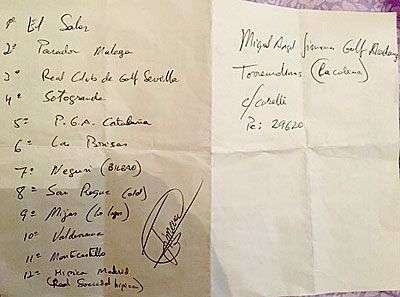 1º El Saler
2º Parador Malaga
3º Real Club de Golf Sevilla
4º Sotogrande
5º P.G.A. Cataluña
6º Las Brisas
7º Neguri (BILBAO)
8º San Roque (old)
9º Mijas (Los lagos)
10º Valderrama
11º Montecastillo
12º Hipica Madrid
(Real Sociedad hipica)
Miguel Angel Jimenez Golf Academy
Torremolinos (La colina)
c/
Pc: 29620